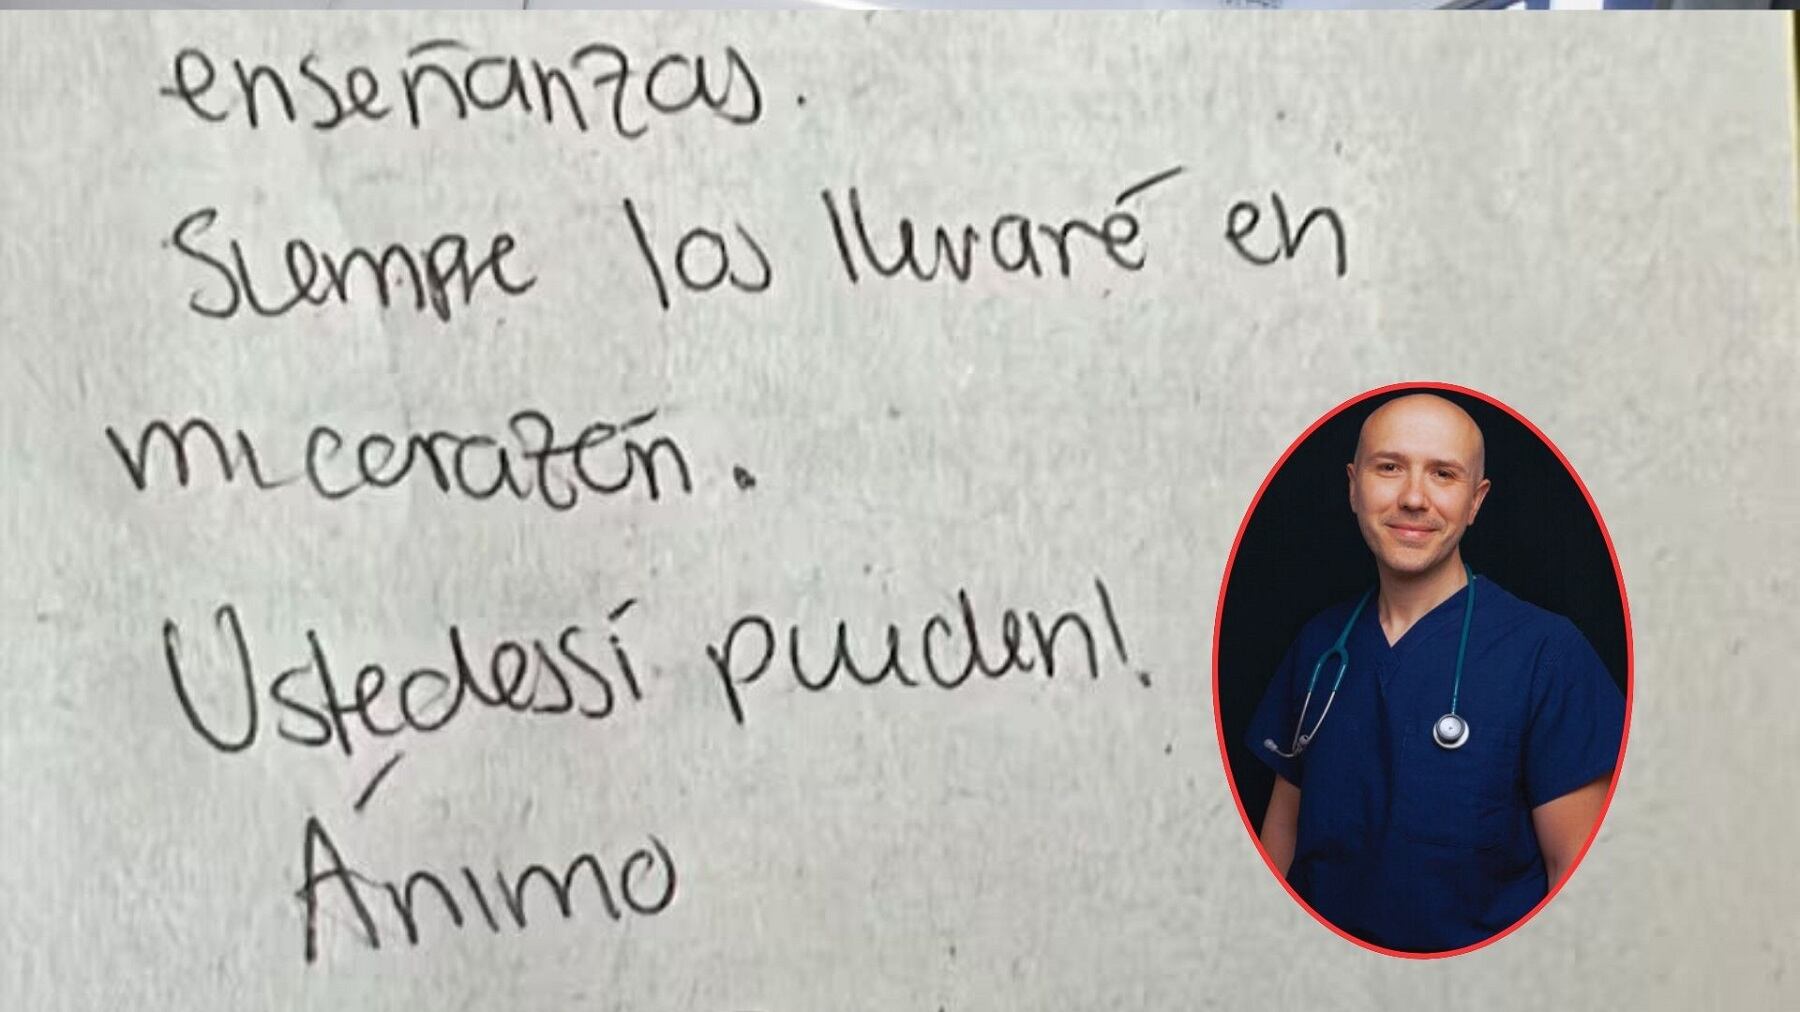 enseñanzas.
Siempre los llevaré en
mi corazón.
Ustedes sí pueden!
Ánimo